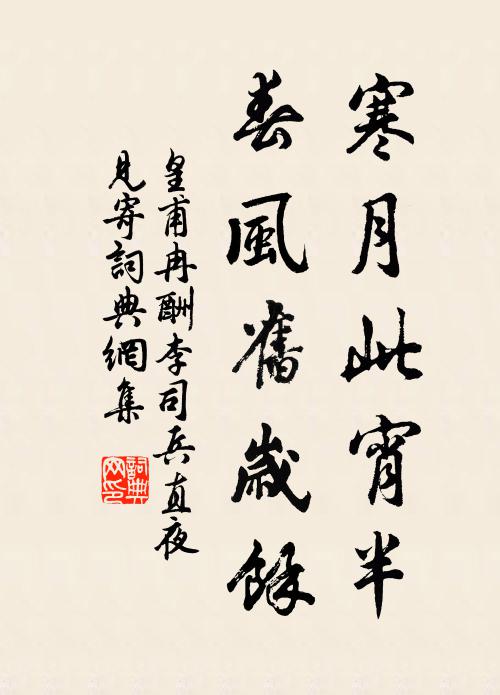 寒月此宵半
春風舊歲餘
皇甫冉酬李司兵直夜
見寄詞典網集
詞典
网印